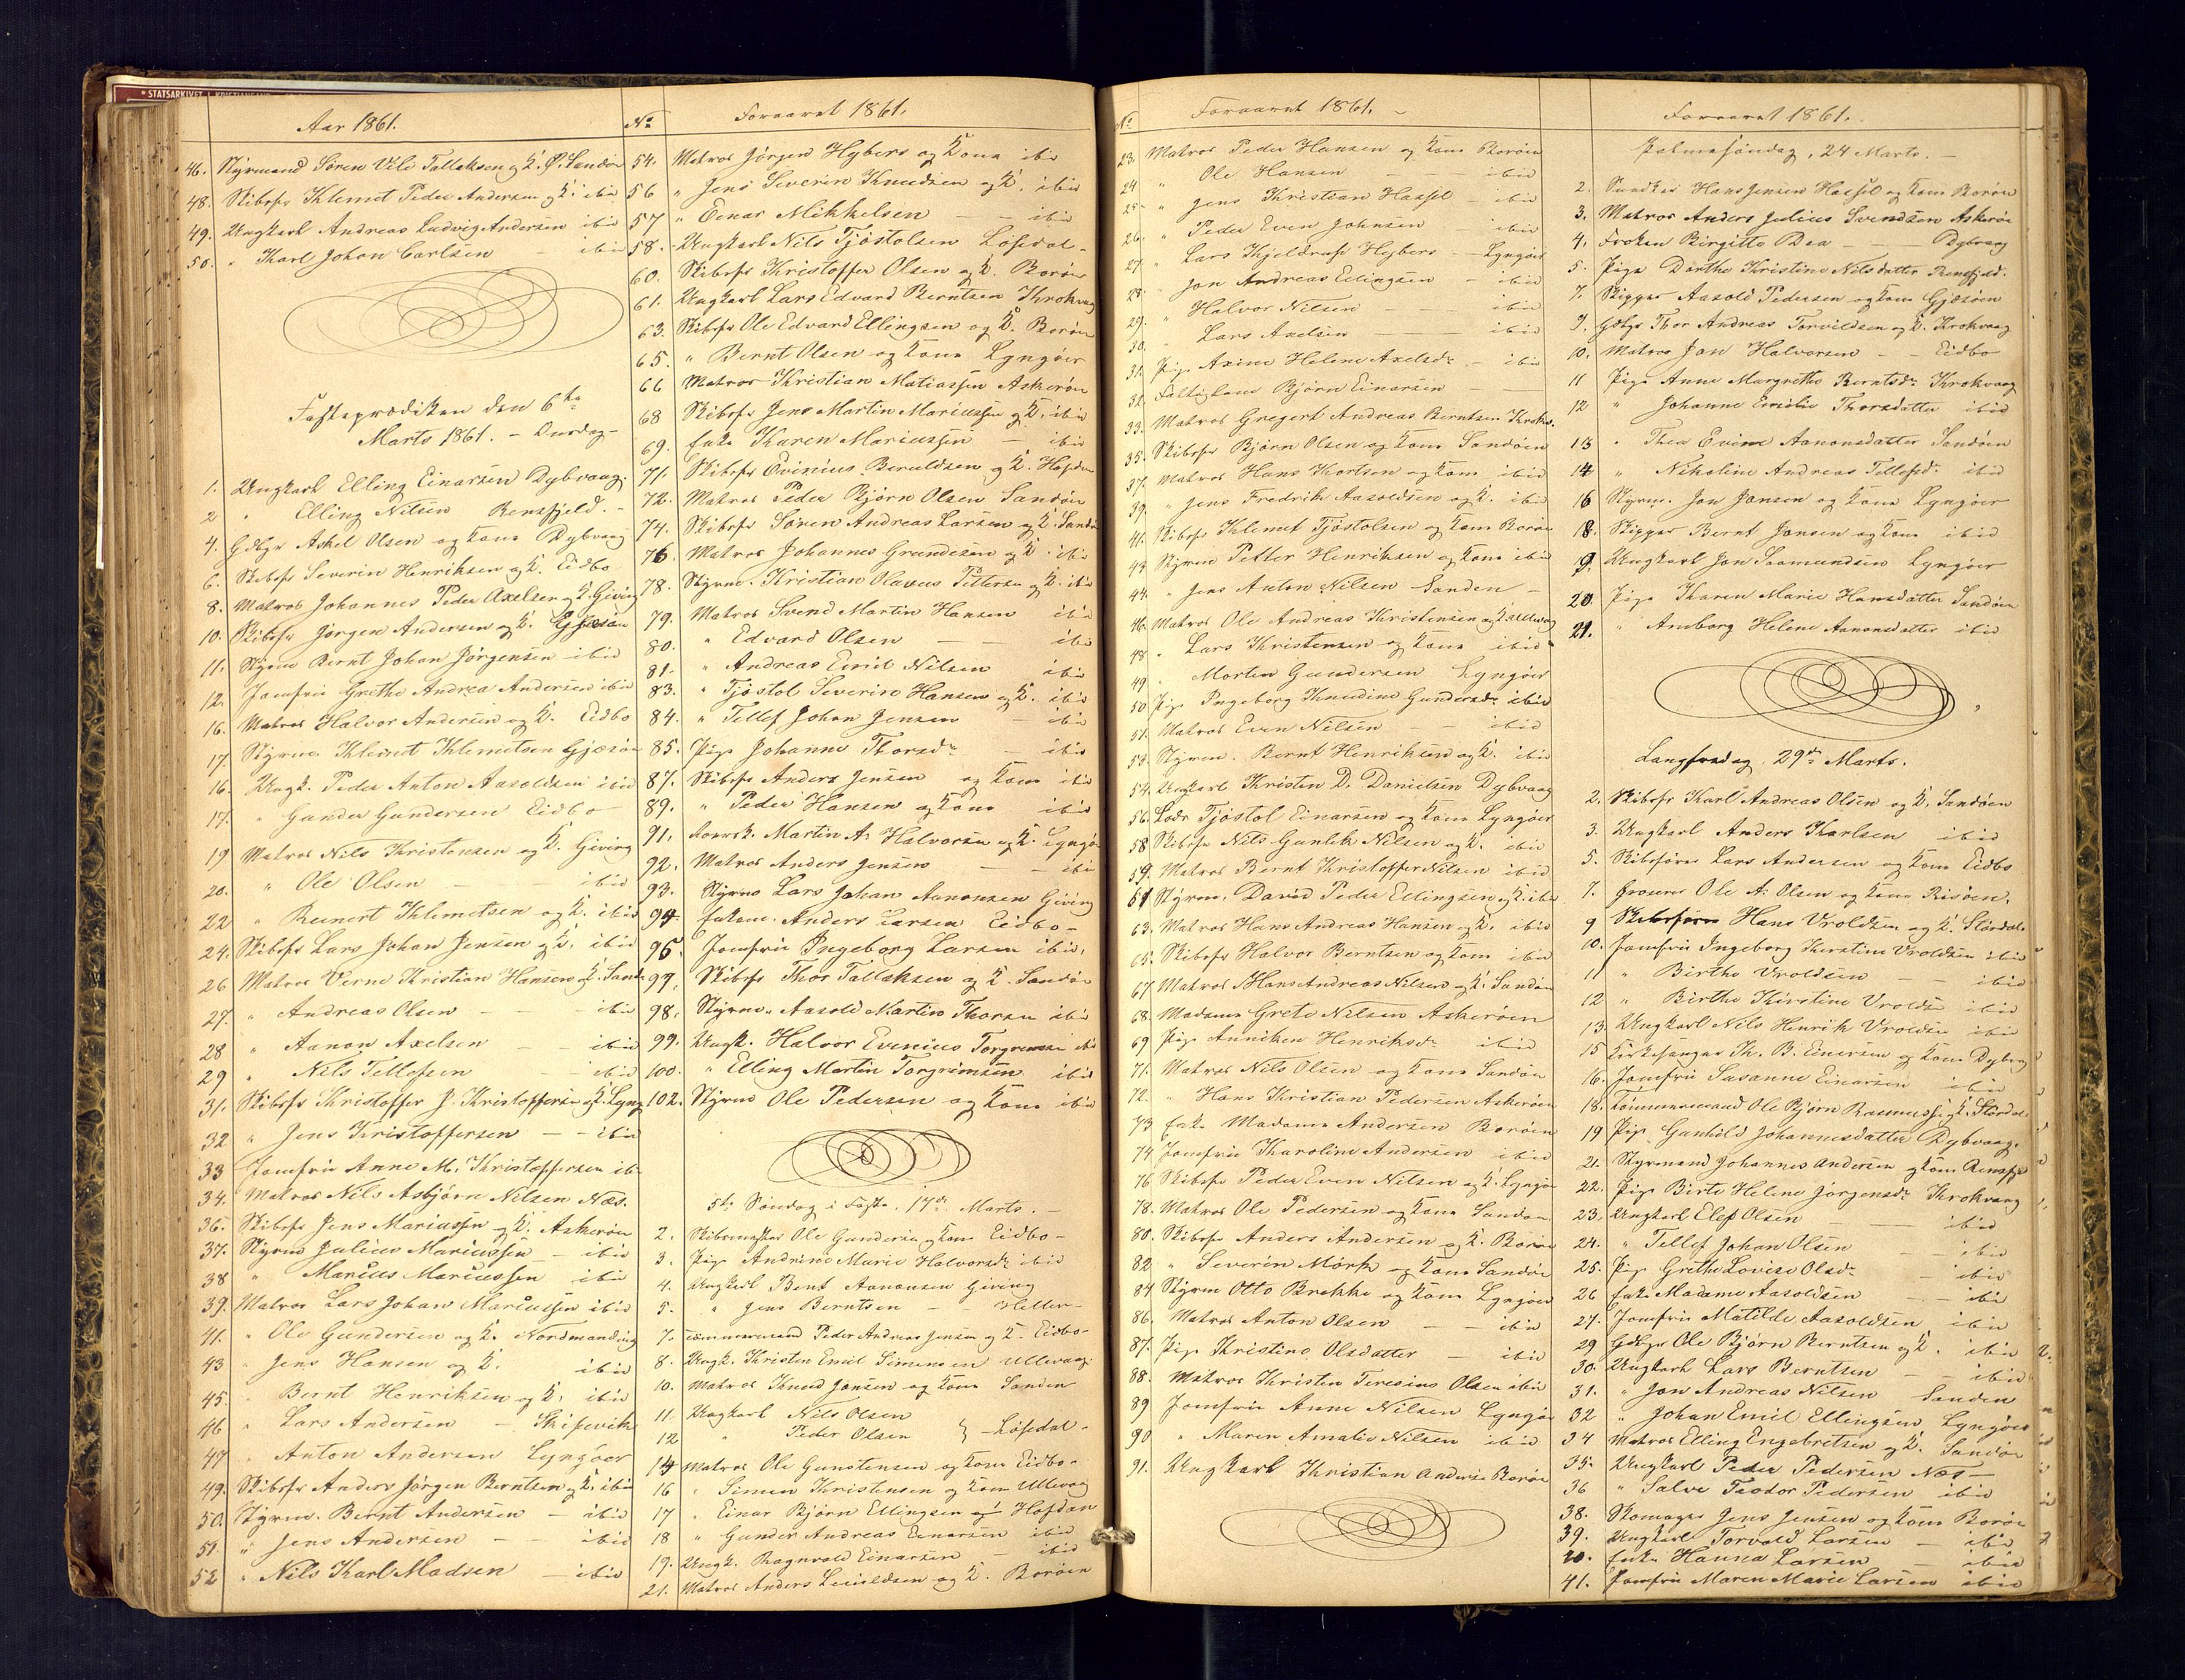 * STATSARKIVET I KRISTIANSAND
Aar 1861.
46. Styrmand Søren Vilé Tallaksen og K. Ø. Sandøen
48. Skibsfr Klemet Peder Andersen og K. ibid
49. Ungkarl Andreas Ludvig Andersen ibid
50. " Karl Johan Carlsen - ibid
Fasteprædiken den 6te
Marts 1861. - Onsdag -
1. Ungkarl Elling Einarsen Dybvaag.
2 " Elling Nilsen Rensfjeld. -
4. Gdbgr Askel Olsen og Kone Dybvaag
6. Skibsfr Severin Henriksen og K. Eidbo
8. Matros Johannes Peder Axelsen og K. Giving
10. Skibsfr Jørgen Andersen og K. Gjæsøen
11. Styrm Bernt Johan Jørgensen ibid
12. Jomfru Grethe Andrea Andersen ibid
16. Matros Halvor Andersen og K. Eidbo
17. Styrm. Klemet Klemetsen Gjæsøen
16. Ungk. Peder Anton Aasoldsen ibid
17. " Gunder Gundersen Eidbo
19 Matros Nils Kristensen og K. Giving
20. " Ole Olsen - - ibid
22 " Reinert Klemetsen og K. ibid
24. Skibsfr Lars Johan Jensen og K. ibid
26 Matros Verne Kristian Hansen og K. Sandø
27. " Andreas Olsen - - ibid
28 " Aanon Axelsen - ibid
29 " Nils Tellefsen - ibid
31. Skibsfr Kristoffer J. Kristoffersen og K. Lyng
32 " Jens Kristoffersen - - ibid
33 Jomfru Anne M. Kristoffersen ib-
34. Matros Nils Asbjørn Nilsen Næs.
36. Skibsfr Jens Mariussen og K. Askerøen
37. Styrm Julius Mariussen - ibid
38 " Marius Mariussen ibid
39. Matros Lars Johan Mariussen ibid
41. " Ole Gundersen og K. Nordmandvig
43 " Jens Hansen og K. ibid
45. " Bernt Henriksen og K. ibid
46 " Lars Andersen - Skibsvik
47 " Anton Andersen Lyngøer
49. Skibsfr Anders Jørgen Berntsen og K. ibid
50. Styrm. Bernt Andersen - ibid
51. " Jens Andersen - - ibid
52 " Nils Karl Madsen - ibid
No Foraaret 1861.
54. Matros Jørgen Hybers og Kone ibid
56 " Jens Severin Knudsen og K. ibid
57 " Einar Mikkelsen - - ibid
58. Ungkarl Nils Tjøstolsen Løfsdal -
60. Skibsfr Kristoffer Olsen og K. Borøen
61. Ungkarl Lars Edvard Berntsen Krokvaag
63. Skibsfr Ole Edvard Ellingsen og K. Borøen
65. " Bernt Olsen og Kone Lyngøer
66 Matros Kristian Matiassen Askerøen
68 Skibsfr Jens Martin Mariussen og K. ibid
69. Enke Karen Mariussen - ibid
71. Skibsfr Evinius Beruldsen og K. Hofdan
72. Matros Peder Bjørn Olsen Sandøen
74. Skibsfr Søren Andreas Larsen og K. Sandø
76. Matros Johannes Grundesen og K. ibid
78. Styrm. Kristian Olaves Pettersen og K. ibid
79. Matros Svend Martin Hansen ibid
80. " Edvard Olsen - - ibid
81. " Andreas Emil Nilsen ibid
83. " Tjøstol Severin Hansen og K. ibid
84. " Tellef Johan Jensen - ibid
85. Pige Johanne Thorsdr - ibid
87. Skibsfr Anders Jensen og Kone ibid
89. " Peder Hansen og Kone ibid
91. Martin A. Halvorsen og K. Lyngø
92. Matros Anders Jensen - - ibid
93. Styrm Lars Johan Aanonsen Giving
94. Enkem. Anders Larsen Eidbo -
96. Jomfru Ingeborg Larsen ibid.
97. Skibsfr Thor Tallaksen og K. Sandøen
98. Styrm. Aasold Martin Thorsen ibid
99. Ungk. Halvor Evenius Torgrimsen ibid
100. " Elling Martin Torgrimsen ibid
102. Styrm Ole Pedersen og Kone ibid
5te Søndag i Faste. 17de Marts. -
2. Skibsmægler Ole Gundersen og Kone Eidbo -
3. Pige Andrine Marie Halvorsdr ibid
4. Ungkarl Bent Aanonsen Giving
5. " Jens Berntsen - - Heller -
7. Tømmermand Peder Andreas Jensen og K. Eidbo -
8. Ungk. Kristen Emil Simonsen Ullevaag
10. Matros Knud Jansen og Kone Sanden
11. Ungkarl Nils Olsen
12 " Peder Olsen } Løfsdal -
14 Matros Ole Gunstensen og Kone Eidbo -
16 " Simen Kristensen og Kone Ullevaag
17 " Einar Bjørn Ellingsen og Hofdan
18 " Gunder Andreas Einarsen ibid
19. Ungk. Ragnvald Einarsen - ibid
21. Matros Anders Leuvoldsen og K. Borøen
No Foraaret 1861. -
23. Matros Peder Hansen og Kone Borøen
24 " Ole Hansen - - ibid
25 " Jens Kristian Hassel - ibid
26. " Peder Even Johnsen - ibid
27. " Lars Kjeldrup Hybers - Lyngøer
28. " Jon Andreas Ellingsen - ibid
29. " Halvor Nilsen - ibid
30. " Lars Axelsen - ibid
31. Pige Axine Helene Axelsdr - ibid
32. Fattiglem Bjørn Einarsen -
33. Matros Gregert Andreas Berntsen Krokv.
35. Skibsfr Bjørn Olsen og Kone Sandøen
37. Matros Hans Kortsen og Kone ibid
39. " Jens Fredrik Aasoldsen og K. ibid
41. Skibsfr Klemet Tjøstolsen og Kone Borøen
43 Styrm Petter Henriksen og Kone ibid
44. " Jens Anton Nilsen Sanden -
46. Matros Ole Andreas Kristensen og K Ullevaag
48 " Lars Kristensen og Kone ibid
49 " Morten Gundersen Lyngøer
50 Pige Ingeborg Knudine Gundersdr ibid
51. Matros Even Nilsen - - ibid
53. Styrm. Bernt Henriksen og K. ibid
54. Ungkarl Kristen D. Danielsen Dybvaag
56. Lods Tjøstol Einarsen og Kone Lyngøer
58 Skibsfr Nils Gunlik Nilsen og K. ibid
59. Matros Bernt Kristoffer Nilsen ibid
61 Styrm. David Peder Ellingsen og K. ibid
63. Matros Hans Andreas Hansen og K. ibid
65. Skibsfr Halvor Berntsen og Kone ibid
67 Matros Hans Andreas Nilsen og K. Sandøen
68. Madame Grete Nilsen Askerøen
69 Pige Anniken Henriksdr ibid
71. Matros Nils Olsen og Kone Sandøen
72. " Hans Kristian Pedersen Askerøen
73 Enke Madame Andersen Borøen
74 Jomfru Karoline Andersen ibid
76 Skibsfr Peder Even Nilsen og K. Lyngøer
78. Matros Ole Pedersen og Kone Sandøen
80. Skibsfr Anders Andersen og K. Borøen
82 " Severin Mørk og Kone Sandøen
84 Styrm Otto Brekke og Kone Lyngøer
86. Matros Anton Olsen - - ibid
87. Pige Kristine Olsdatter - ibid
88. Matros Kristen Teresius Olsen ibid
89 Jomfru Anne Nilsen Lyngøer
90 " Maren Amalie Nilsen ibid
91. Ungkarl Kristian Andersen Borøen
Foraaret 1861.
Palmesøndag, 24 Marts. -
2. Hans Jensen Hassel og Kone Borøen
3. Matros Anders Julius Svendsen Askerøen
4. Frøken Birgitte Dea - - Dybvaag
5. Pige Dorthe Kristine Nilsdatter Rensfjeld.
7. Skipper Aasold Pedersen og Kone Gjæsøen
9. Gdbgr Thor Andreas Torvildsen og K. Krokvaag
10. Matros Jan Halvorsen - - Eidbo
11 Pige Anne Margrethe Berntsdr Krokvaag
12 " Johanne Emilie Thorsdatter ibid
13 " Thea Evine Aanonsdatter Sandøen
14 " Nikoline Andreas Tellefsdr ibid
16 Styrm. Jon Jonsen og Kone Lyngøer
18. Skipper Bernt Jonsen og Kone ibid
9. Ungkarl Jon Saamundsen Lyngøer
20. Pige Karen Marie Hansdatter Sandøen
21. " Anborg Helene Aanonsdatter ibid
Langfredag 29de Marts.
2. Skibsfr Karl Andreas Olsen og K. Sandøen
3. Ungkarl Anders Karlsen ibid
5. Skibsfører Lars Andersen og Kone Eidbo
7. Groserer Ole A. Olsen og Kone Risøen.
9 Skibsfører Hans Vroldsen og K. Stordal.
10. Jomfru Ingeborg Kirstine Vroldsen ibid
11 " Birthe Vroldsen - ibid
12 " Birthe Kirstine Vroldsen ibid
13. Ungkarl Nils Henrik Vroldsen ibid
15 Kirkesanger Th. B. Einersen og Kone Dybvaag
16. Jomfru Susanne Einarsen ibid
18. Tømmermand Ole Bjørn Rasmussen og K. Stordal
19 Pige Gunhild Johannesdatter Dybvaag.
21. Styrmand Johannes Andersen og Kone Rensfj
22. Pige Birte Helene Jørgensdr Krokvaag
23. Ungkarl Elef Olsen - - ibid
24. " Tellef Johan Olsen - ibid
25. Pige Grethe Lovise Olsdr - ibid
26 Enke Madame Aasoldsen - ibid
27. Jomfru Matilde Aasoldsen ibid
29 Gdbgr Ole Bjørn Berntsen og K. ibid
30. Ungkarl Lars Berntsen - ibid
31. " Jon Andreas Nilsen Sanden
32 " Johan Emil Ellingsen Lyngøer
34 Matros Elling Engebretsen og K. Sandøen
35. Ungkarl Peder Pedersen Næs -
36 " Salve Teodor Pedersen ibid
38. Skomager Jens Jensen og Kone Borøen
39. Ungkarl Torvald Larsen - ibid
40. Enke Hanna Larsen - ibid
41. Jomfru Maren Marie Larsen ibid